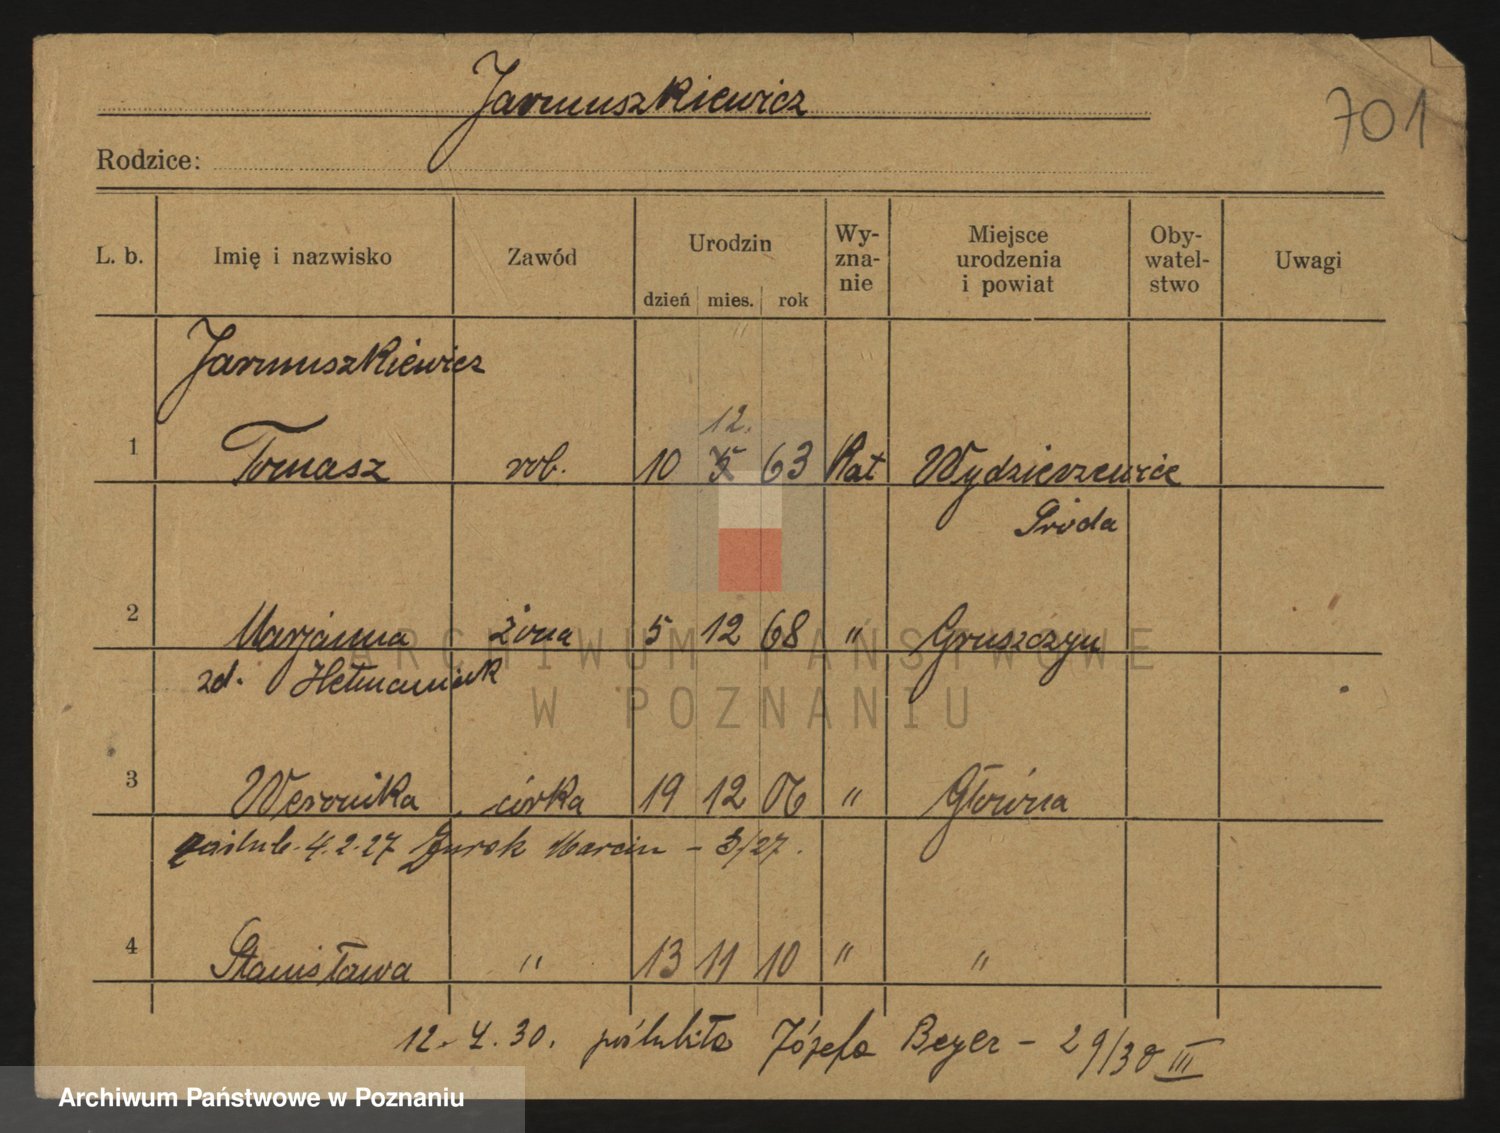 Jarmuszkiewicz
701
Rodzice:
L. b. Imię i nazwisko Zawód Urodzin Wy- Miejsce Oby- Uwagi
zna- urodzenia watel-
nie i powiat stwo
dzień mies. rok
Jarmuszkiewicz
12.
1 Tomasz rob. 10 5 63 Kat Wydzierzewice
Środa
2 Marjanna żona 5 12 68 " Gruszczyn
zd. Hetmaniak
3 Weronika córka 19 12 06 " Główna
zaślub. 4.2.27 Żurek Marcin - 3/27.
4 Stanisława " 13 11 10 " "
12. 4. 30. poślubiła Józefa Beyer - 29/30 III
ARCHIWUM PAŃSTWOWE
W POZNANIU
Archiwum Państwowe w Poznaniu